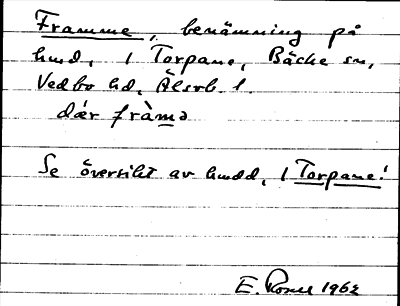 Framme, benämning på
hmd, 1 Torpane, Bäcke sn,
Vedbo hd. Älvsb. l.
där fràmǝ
Se översikt av hmdd, 1 Torpane!
E. 1962